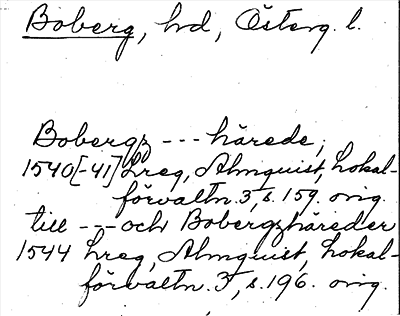 Boberg, hrd, Österg. l.
Bobergz --- härede,
1540[-41] Lreg, Almquist, Lokal-
förvaltn. 3, s. 159. orig.
till --- och Bobergzhäreder
1544 Lreg, Almquist, Lokal-
förvaltn. 3, s. 196. orig.